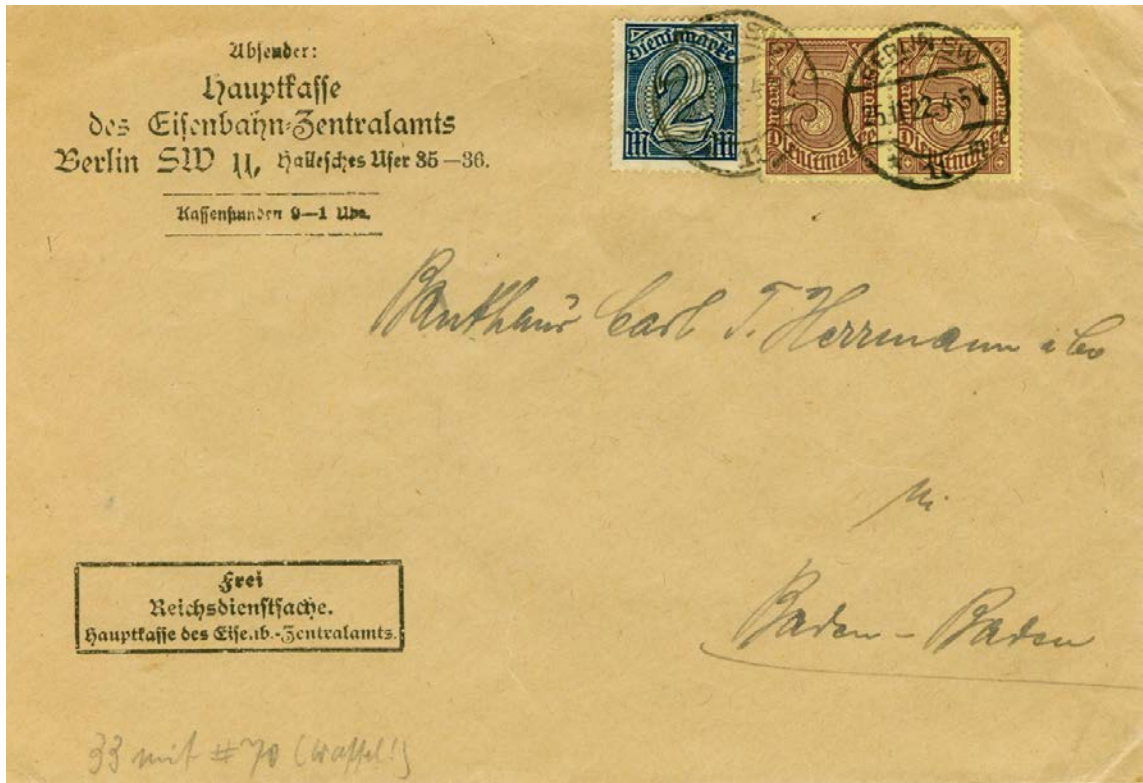 Absender:
Hauptkasse
des Eisenbahn-Zentralamts
Berlin SW 11, Hallesches Ufer 35—36.
Kassenstunden 9—1 Uhr.
Dienstmarke
2
M M
5 5
Dienstmarke Dienstmarke
BERLIN SW
15.11.22.4-5N
11
Bankhaus Carl T. Herrmann & Co
in
Baden-Baden
Frei
Reichsdienstsache.
Hauptkasse des Eisenb.-Zentralamts.
33 mit # 70 (Waffel!)